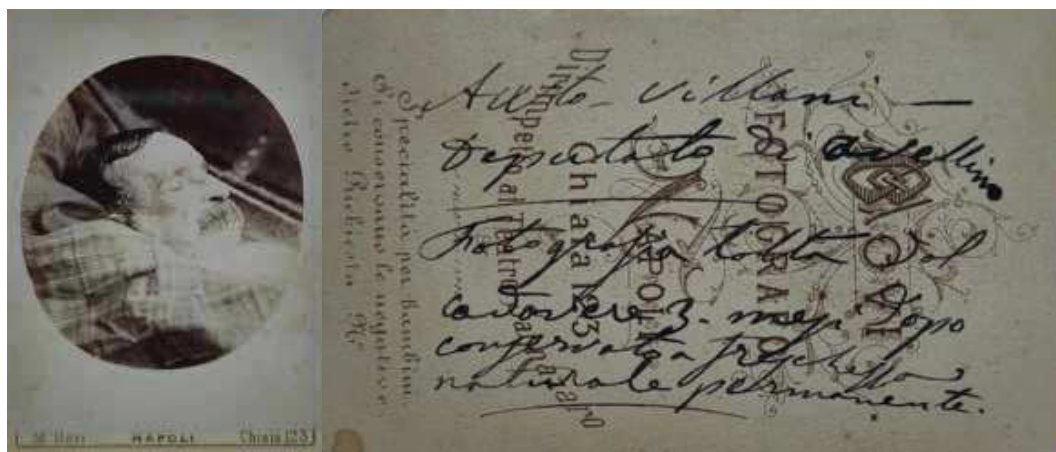 NAPOLI
Chiaia 123
Villani —
Deputato di Avellino
Fotografia tolta dal
cadavere 3. mesi dopo
conservato a freschezza
naturale permanente.
FOTOGRAFO
NAPOLI
Chiaia
Dirimpetto al Teatro
Specialità per bambini
Si conservano le negative